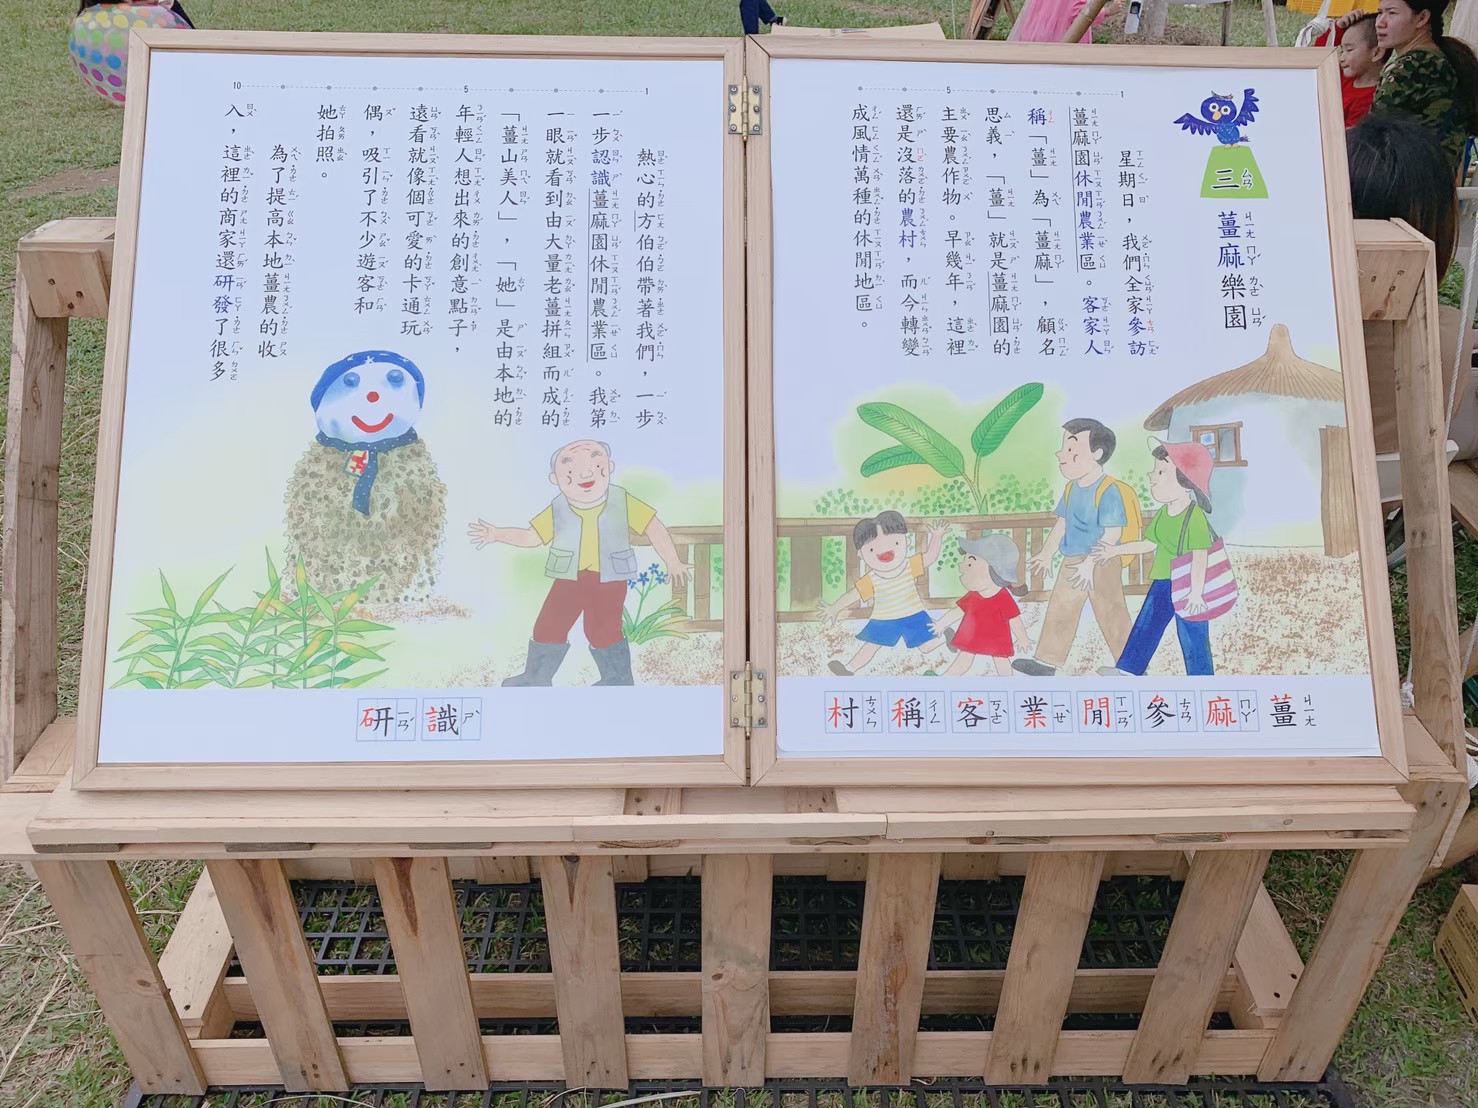 三
薑麻樂園
星期日，我們全家參訪
薑麻園休閒農業區。客家人
稱「薑」為「薑麻」，顧名
思義，「薑」就是薑麻園的
主要農作物。早幾年，這裡
還是沒落的農村，而今轉變
成風情萬種的休閒地區。
薑麻參閒業客稱村
1
5
熱心的方伯伯帶著我們，一步
一步認識薑麻園休閒農業區。我第
一眼就看到由大量老薑拼組而成的
「薑山美人」，「她」是由本地的
年輕人想出來的創意點子，
遠看就像個可愛的卡通玩
偶，吸引了不少遊客和
她拍照。
為了提高本地薑農的收
入，這裡的商家還研發了很多
識研
1
5
10